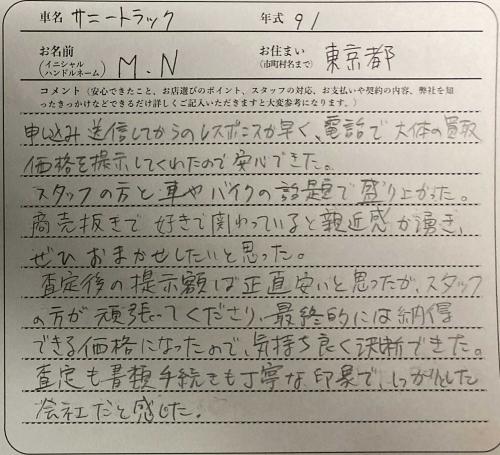 車名 サニートラック 年式 91
お名前 (イニシャル ハンドルネーム) M.N お住まい (市町村名まで) 東京都
コメント(安心できたこと、お店選びのポイント、スタッフの対応、お支払いや契約の内容、弊社を知
ったきっかけなどできるだけ詳しくご記入いただきますと大変参考になります。)
申し込み送信してからのレスポンスが早く、電話で大体の買取
価格を提示してくれたので安心できた。
スタッフの方と車やバイクの話題で盛り上がった。
商売抜きで好きで関わっていると親近感が湧き、
ぜひおまかせしたいと思った。
査定後の提示額は正直安いと思ったが、スタッフ
の方が頑張ってくださり、最終的には納得
できる価格になったので、気持ち良く決断できた。
査定も書類手続きも丁寧な印象で、しっかりとした
会社だと感じた。